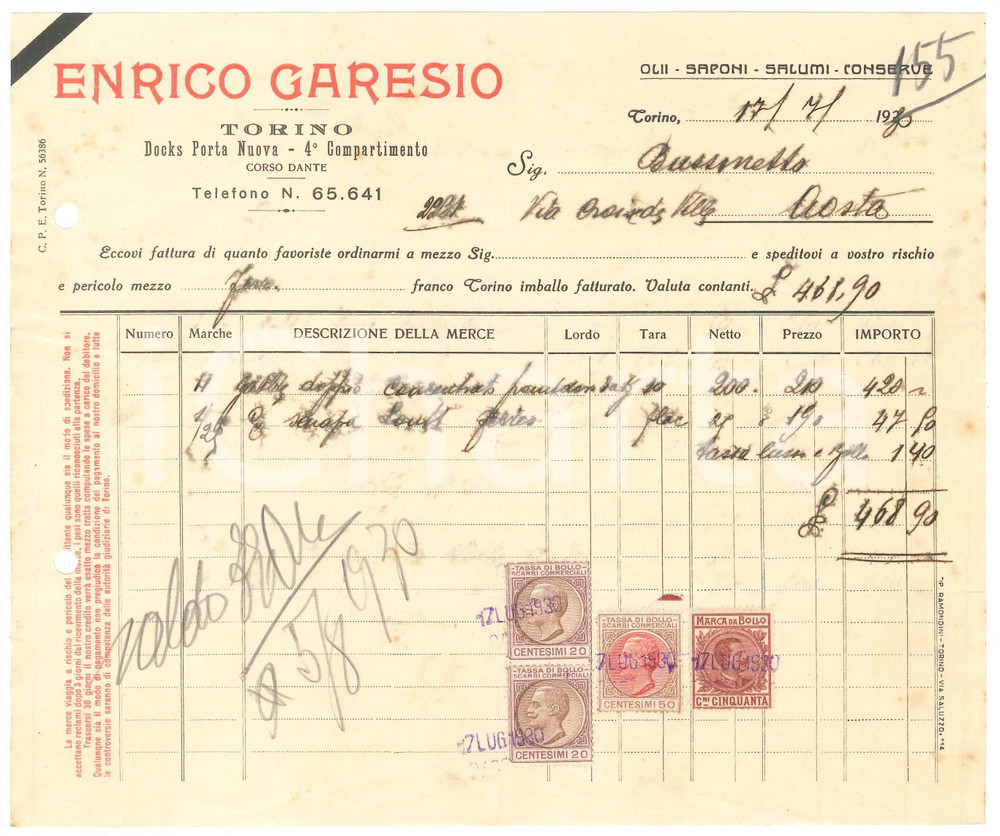 ENRICO GARESIO
TORINO
Docks Porta Nuova - 4° Compartimento
CORSO DANTE
Telefono N. 65.641
C. P. E. Torino N. 56386
155
OLII - SAPONI - SALUMI - CONSERVE
Torino, 17/ 7/ 1930
Sig. Bussonetto
Via Croix de Ville Aosta
Eccovi fattura di quanto favoriste ordinarmi a mezzo Sig. e speditovi a vostro rischio
e pericolo mezzo franco Torino imballo fatturato. Valuta contanti. £ 468,90
Numero Marche DESCRIZIONE DELLA MERCE Lordo Tara Netto Prezzo IMPORTO
doppio 200. 210 420
1/25 190 47 50
Tassa e bollo 1 40
£ 468 90
saldo
5/8 930
TASSA DI BOLLO
SCAMBI COMMERCIALI
CENTESIMI 20
17 LUG 1930
TASSA DI BOLLO
SCAMBI COMMERCIALI
CENTESIMI 20
17 LUG 1930
TASSA DI BOLLO
SCAMBI COMMERCIALI
CENTESIMI 50
17 LUG 1930
MARCA DA BOLLO
CMI CINQUANTA
17 LUG 1930
La merce viaggia a rischio e pericolo del mittente qualunque sia il modo di spedizione. Non si
accettano reclami dopo 3 giorni dal ricevimento della merce, i pesi sono quelli riconosciuti alla partenza.
Trascorsi 30 giorni il nostro credito verrà esatto mezzo tratta computando le spese a carico del debitore.
Qualunque sia il modo di pagamento non pregiudica la condizione del pagamento al nostro domicilio e tutte
le controversie saranno di competenza delle autorità giudiziarie di Torino.
TIP. RAMONDINI - TORINO - VIA SALUZZO, 114